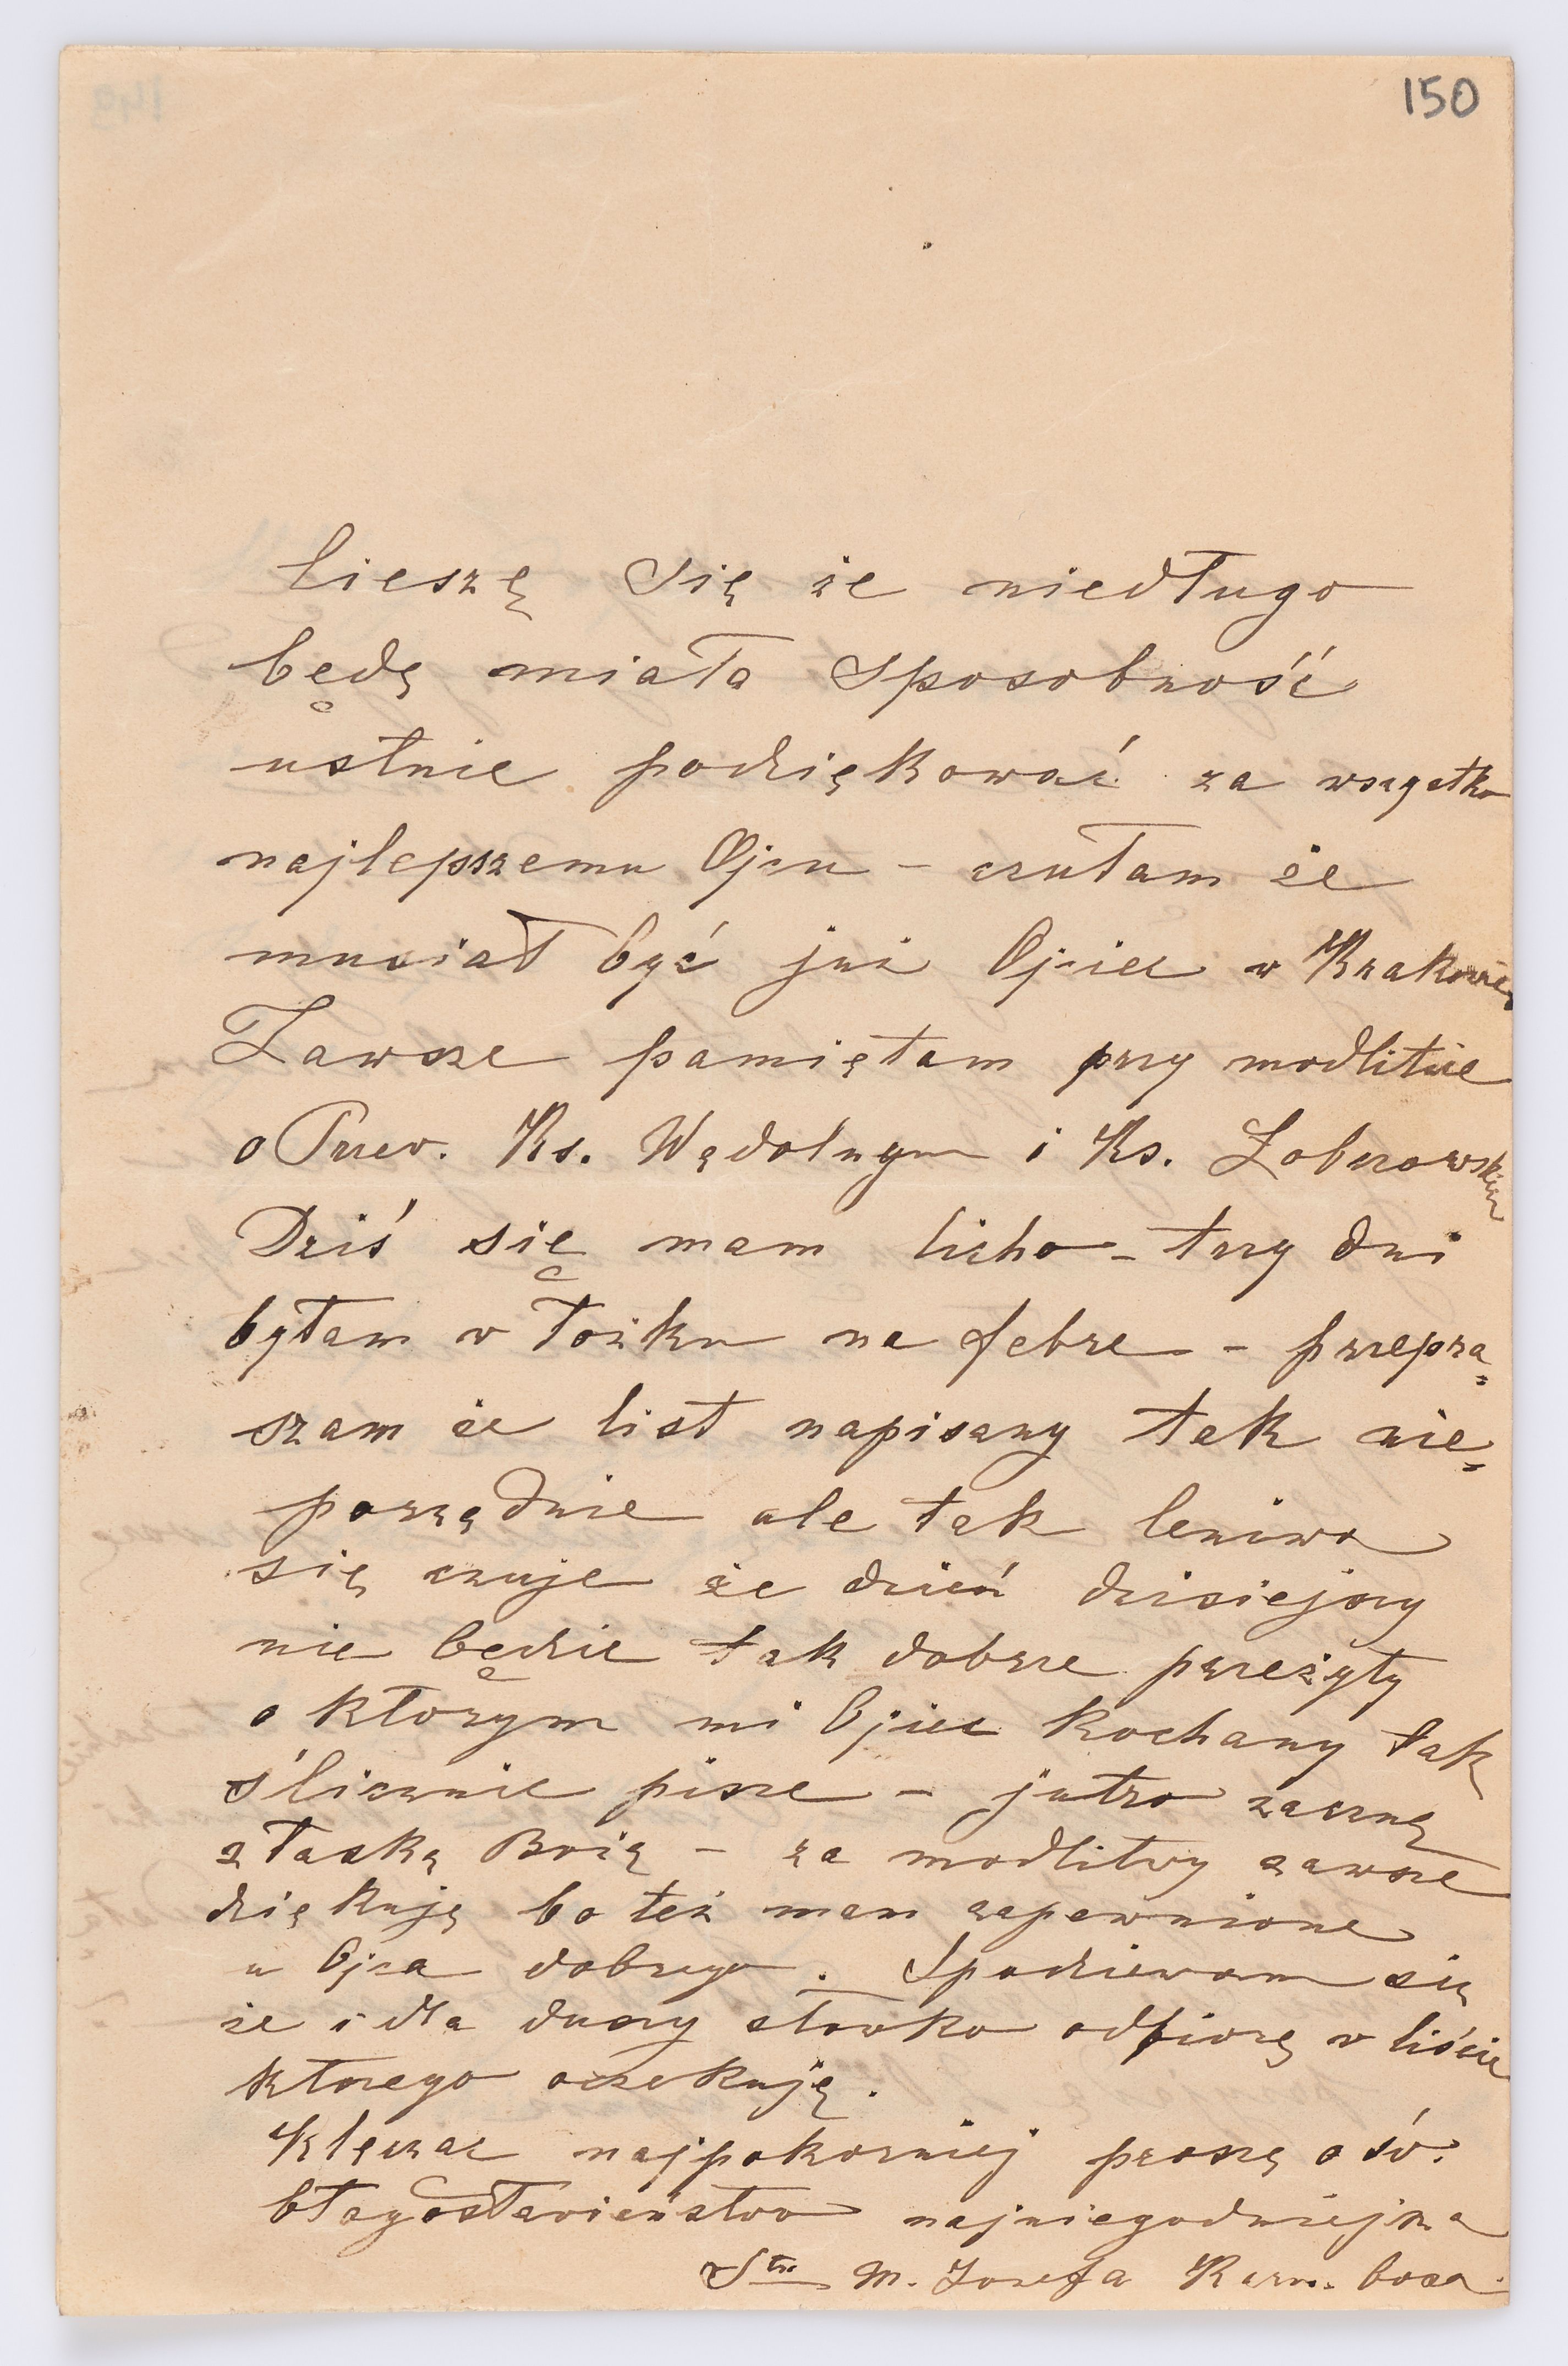 150
Cieszę się że niedługo
będę miała sposobność
ustnie podziękować za wszystko
najlepszemu Ojcu – czułam że
musiał być już Ojciec w Krakowie
Zawsze pamiętam przy modlitwie
o Przew. Ks. Wądolnym i Ks.
Dziś się mam licho – trzy dni
byłam w łożku na febre – przepra„
szam że list napisany tak nie„
porządnie ale tak leniwo
się czuje że dzień dzisiejszy
nie będzie tak dobrze przeżyty
o ktorym mi Ojciec kochany tak
ślicznie pisze – jutro zacznę
z łaską Bożą – za modlitwy zawsze
dziękuję bo też mam zapewnione
u Ojca dobrego. Spodziewam się
że i dla duszy słowko odbiorę w liście
ktorego oczekuję.
Klęcząc najpokorniej proszę o św.
błagosławieństwo najniegodniejsza
Stra M. Jozefa Karm. bosa.